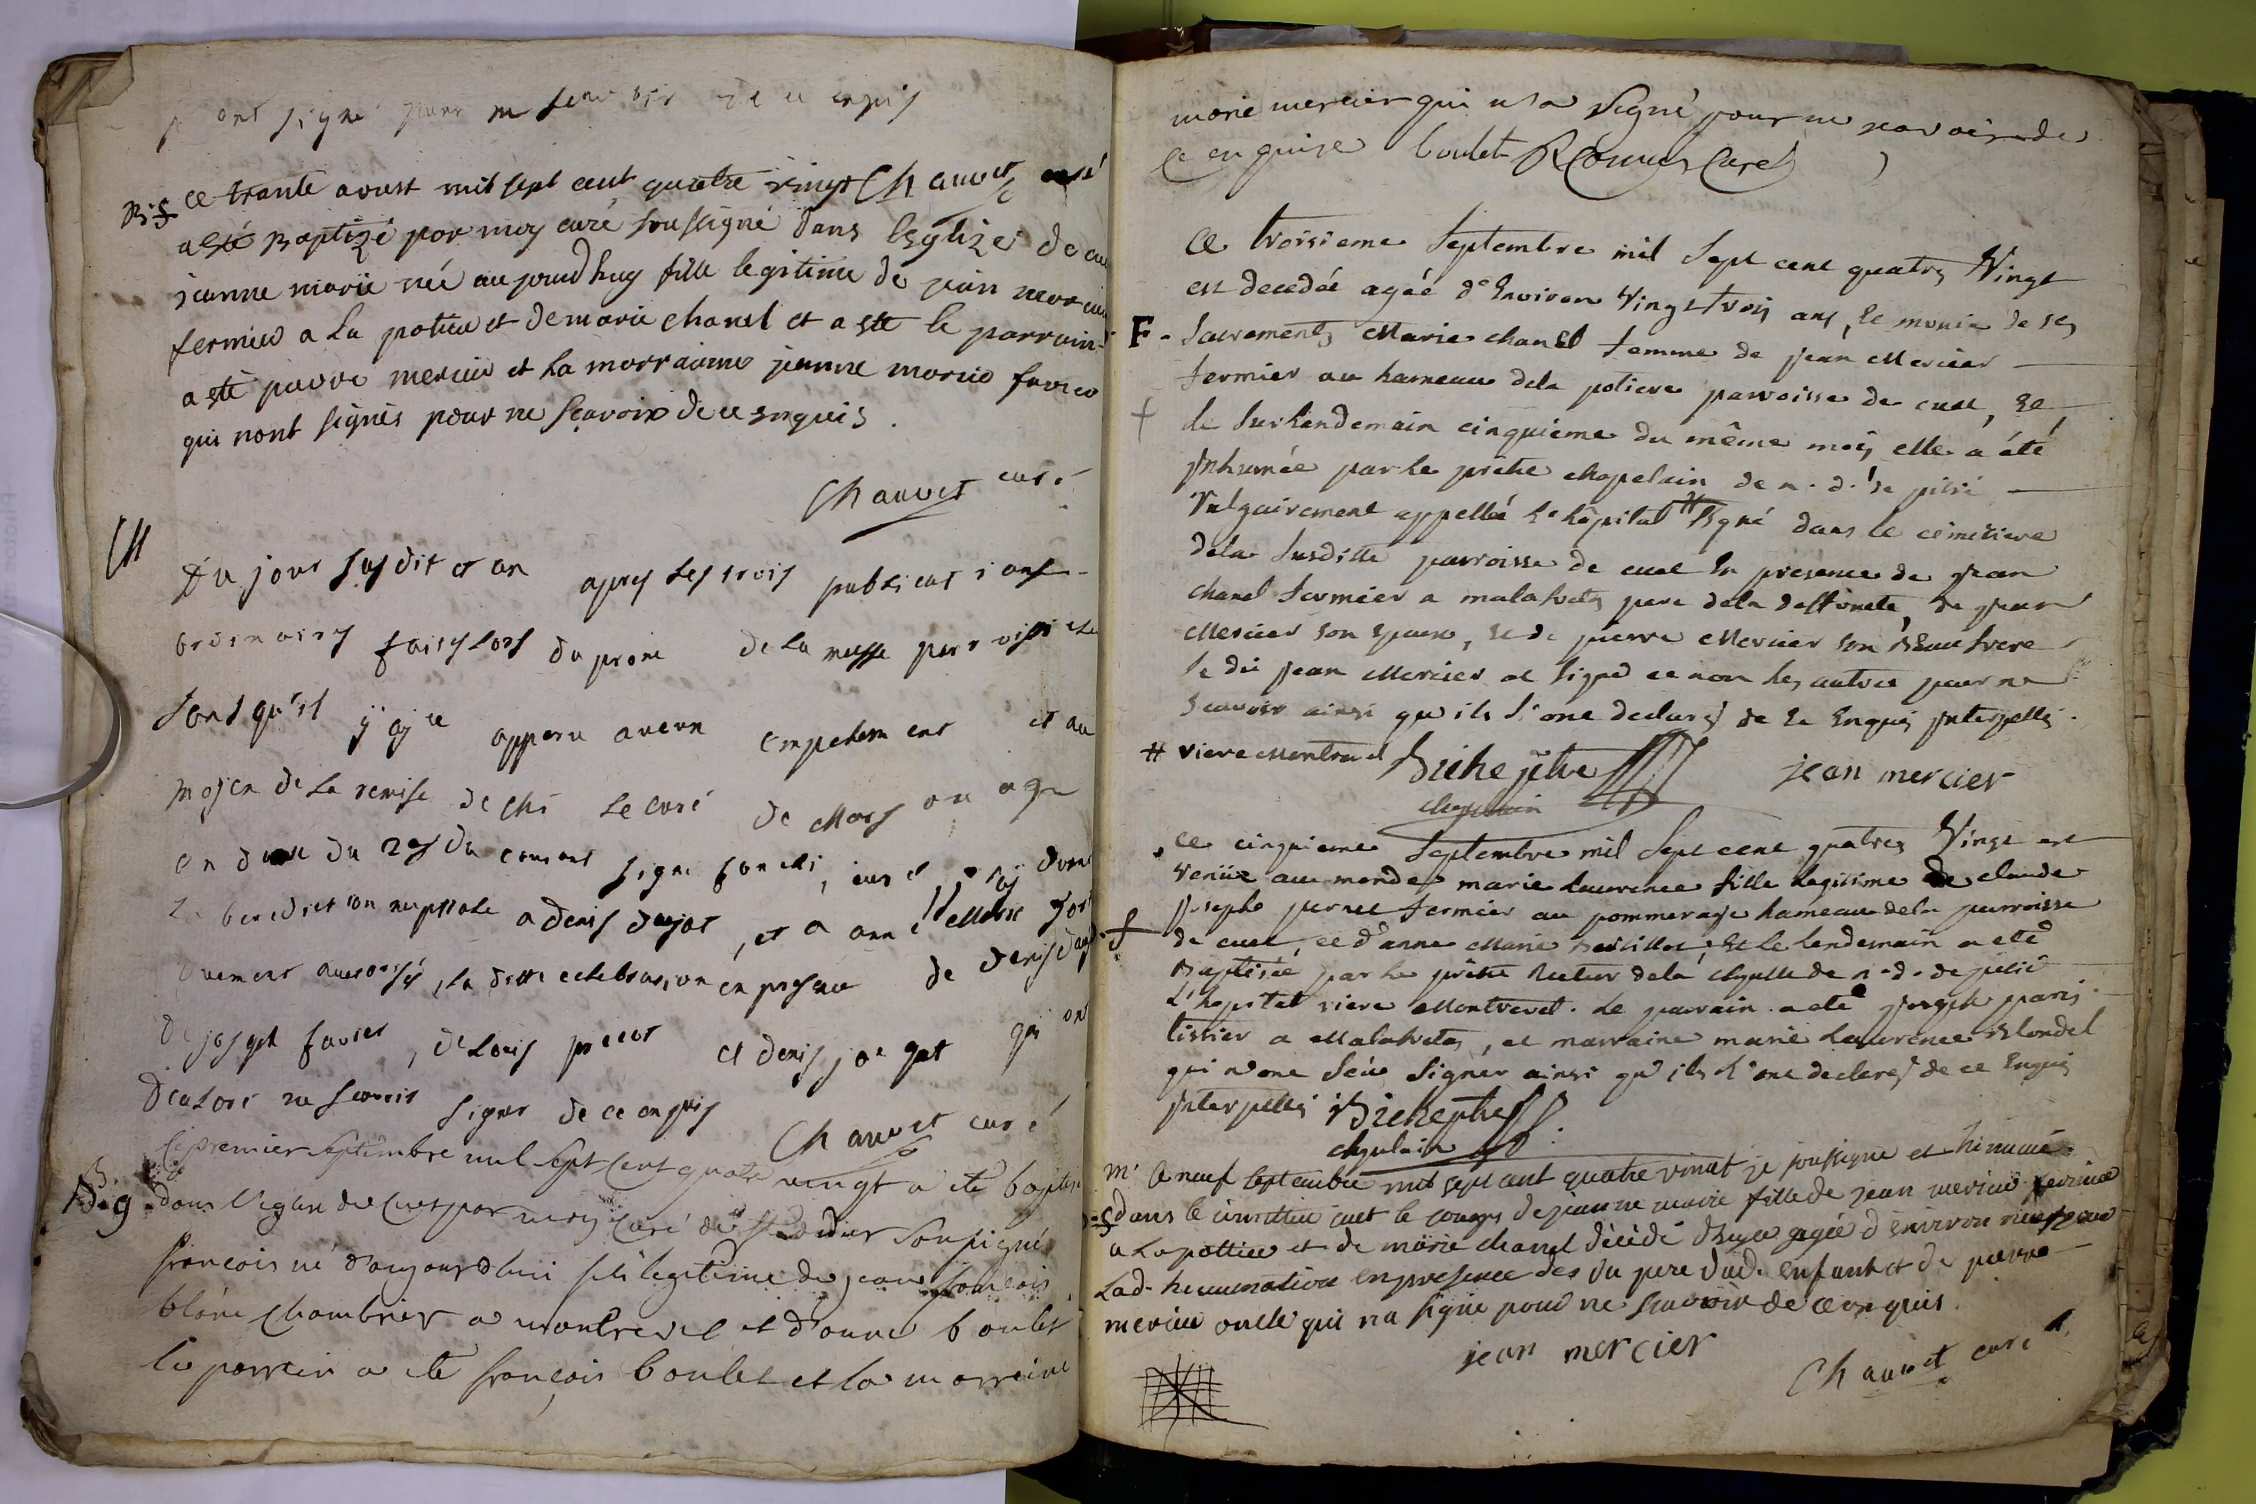 ont signé pour ne scavoir de ce enquis
B. f. ce trante aoust mil sept cent quatre vingt Chauvet curé
a esté Baptizé par moy curé soussigné dans lesglize de cuet
jeanne marie née aujourdhuy fille legitime de jean mercier
fermier a La potiere et de marie chanel et a esté le parrain
a esté pierre mercier et La marrainne jeanne marie favier
qui nont signés pour ne scavoir de ce enquis.
Chauvet curé
M
Du jour susdit et an apres les trois publications
ordinaires faites lors du prone de la messe parroissiale
sans qu'il y aye apparu aucun empechement et au
moyen de la remise de Mr Le curé de
en datte du 29 du courant signé curé, j'ay donné
La benediction nuptiale a denis et a anne
la ditte celebration en presence de denis
de joseph favier, de Louis et denis qui ont
declaré ne scavoir signer de ce enquis
Chauvet curé
B. g. Ce premier septembre mil sept cent quatre vingt a été baptisé
dans l'eglise de Cuet par moy curé de St didier soussigné
francois né d'aujourdhui fils legitime de jean francois
blanc chambrier a montrevel et d'anne boulet
le parrein a été françois boulet et la marreine
marie mercier qui n'a signé pour ne scavoir de
ce enquise boulet Curé
Ce troisieme Septembre mil Sept cent quatre Vingt
est decedée agée d'Environ Vingt trois ans, et munie de ses
F. Sacrements Marie chanel femme de jean Mercier
fermier au hameau dela potiere parroisse de cuet, Et
le Surlendemain cinquieme du même mois elle a été
Inhumée par le prêtre chapelain de n. d. de pitié
Vulgairement appellé le hôpital # Signé dans le cimetiere
dela Susditte parroisse de cuet En presence de jean
chanel fermier a malafretaz pere dela deffunete, de jean
Mercier son Epoux, et de pierre Mercier son Beau frere
le dit jean Mercier a Signé et non les autres pour ne
Scavoir ainsi qu'ils L'ont declarés de ce Enquis Interpellés.
# riere Montrevel Biche ptre jean mercier
chapelain
ce cinquieme Septembre mil Sept cent quatre Vingt est
Venüe au monde marie laurence fille legitime de claude
joseph pernet fermier au pommerage hameau dela parroisse
f de cuet, et d'anne Marie, Et le lendemain a eté
Baptisée par le prêtre Recteur dela chapelle de n. d. de pitié
L'hopital riere Montrevel. le parrain a eté joseph paris
tissier a Malafretaz, et marraine marie Laurence Blondel
qui n'ont Sçeu Signer ainsi qu'ils L'ont declarés de ce Enquis
Interpellés Biche ptre
chapelain
m. Ce neuf septembre mil sept cent quatre vingt je soussigne et hinumé
dans le cimettiere cuet le corps de jeanne marie fille de jean mercier fermier
a La pottiere et de marie chanel décédé agée d environ neuf jour
Lad. hinumation en presence des du pere dud. enfant et de pierre
mercier oncle qui n'a signé pour ne scavoir de ce enquis.
jean mercier
Chauvet curé